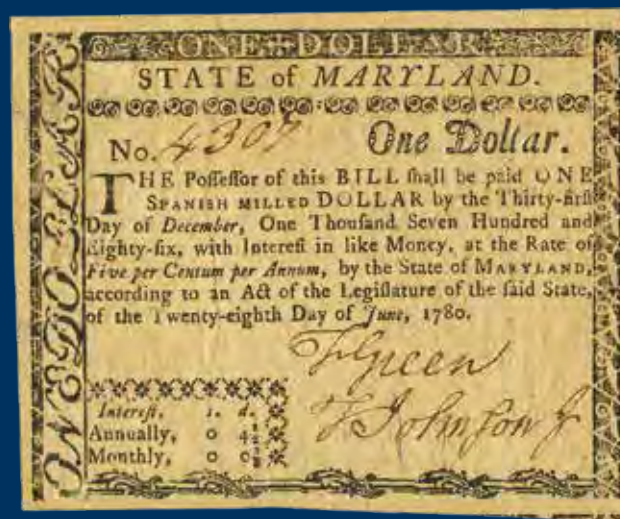 ONE DOLLAR
STATE of MARYLAND.
No. 4307 One Dollar.
THE Poſſeſſor of this BILL ſhall be paid ONE
SPANISH MILLED DOLLAR by the Thirty-firſt
Day of December, One Thouſand Seven Hundred and
Eighty-ſix, with Intereſt in like Money, at the Rate of
Five per Centum per Annum, by the State of MARYLAND,
according to an Act of the Legiſlature of the ſaid State,
of the Twenty-eighth Day of June, 1780.
F Green
T Johnſon J
Intereſt. s. d.
Annually, 0 4½
Monthly, 0 0⅜
ONE DOLLAR